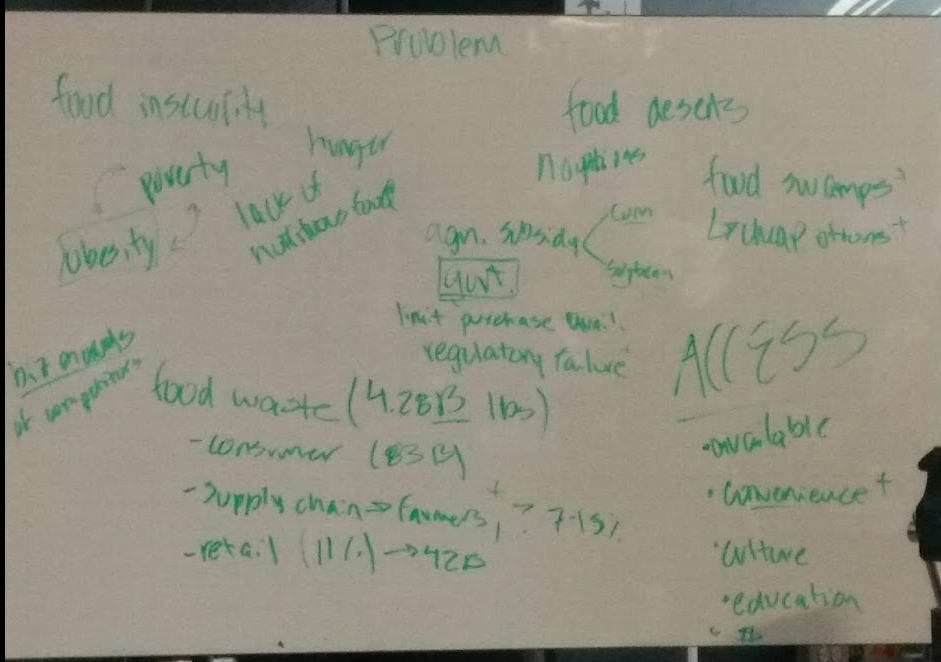 Problem
food insecurity
hunger
poverty
lack of
nutritious food
obesity
food deserts
no options
food swamps
↳ cheap options +
agri. subsidy
corn
soybean
govt.
limit purchase avail.
regulatory failure
of competitors
food waste (4.28B lbs)
- consumer (83B)
- supply chain → farmers, + ? 7-15%
- retail (11%) → 42B
ACCESS
• available
• convenience +
• culture
• education